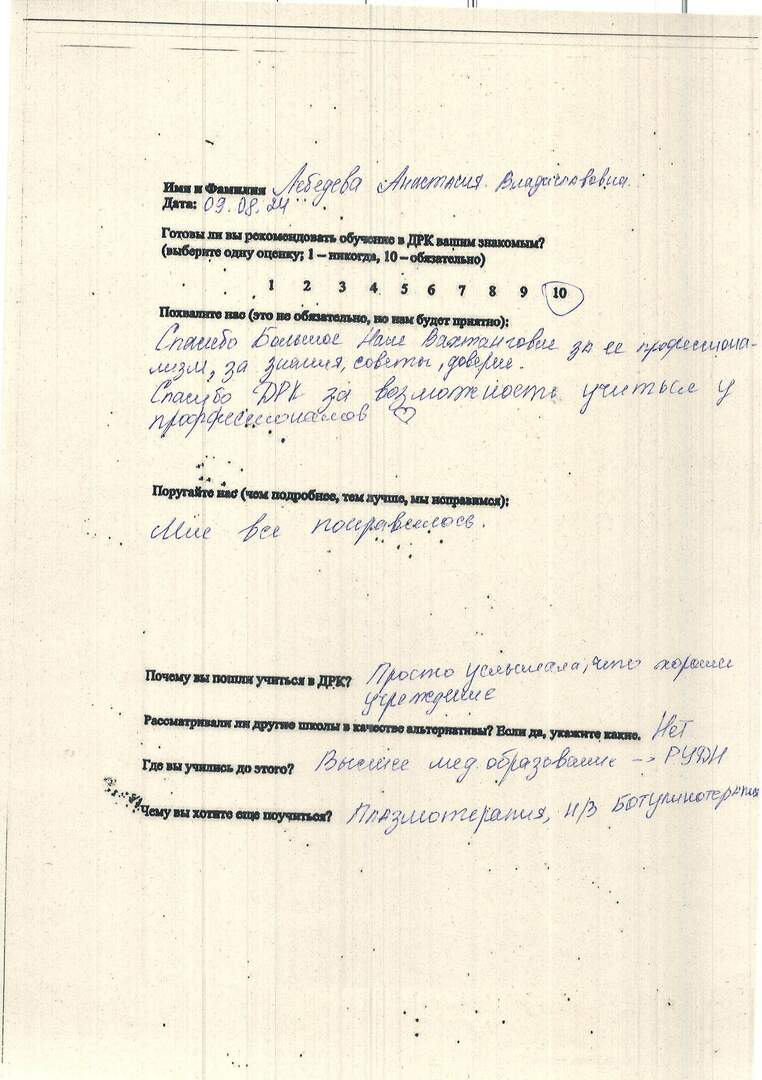 Имя и Фамилия Лебедева Анастасия Владиславовна.
Дата: 09.08.24
Готовы ли вы рекомендовать обучение в ДРК вашим знакомым?
(выберите одну оценку; 1 – никогда, 10 – обязательно)
1 2 3 4 5 6 7 8 9 10
Похвалите нас (это не обязательно, но нам будет приятно):
Спасибо Большое Вахтанговне за ее профессиона-
лизм, за знания, советы, доверие.
Спасибо ДРК за возможность учиться у
профессионалов ♡
Поругайте нас (чем подробнее, тем лучше, мы исправимся):
Мне все понравилось.
Почему вы пошли учиться в ДРК? Просто услышала, что хорошее
учреждение
Рассматривали ли другие школы в качестве альтернативы? Если да, укажите какие. Нет
Где вы учились до этого? Высшее мед. образование → РУДН
Чему вы хотите еще поучиться? Плазмотерапия, н/з Ботулинотерапия